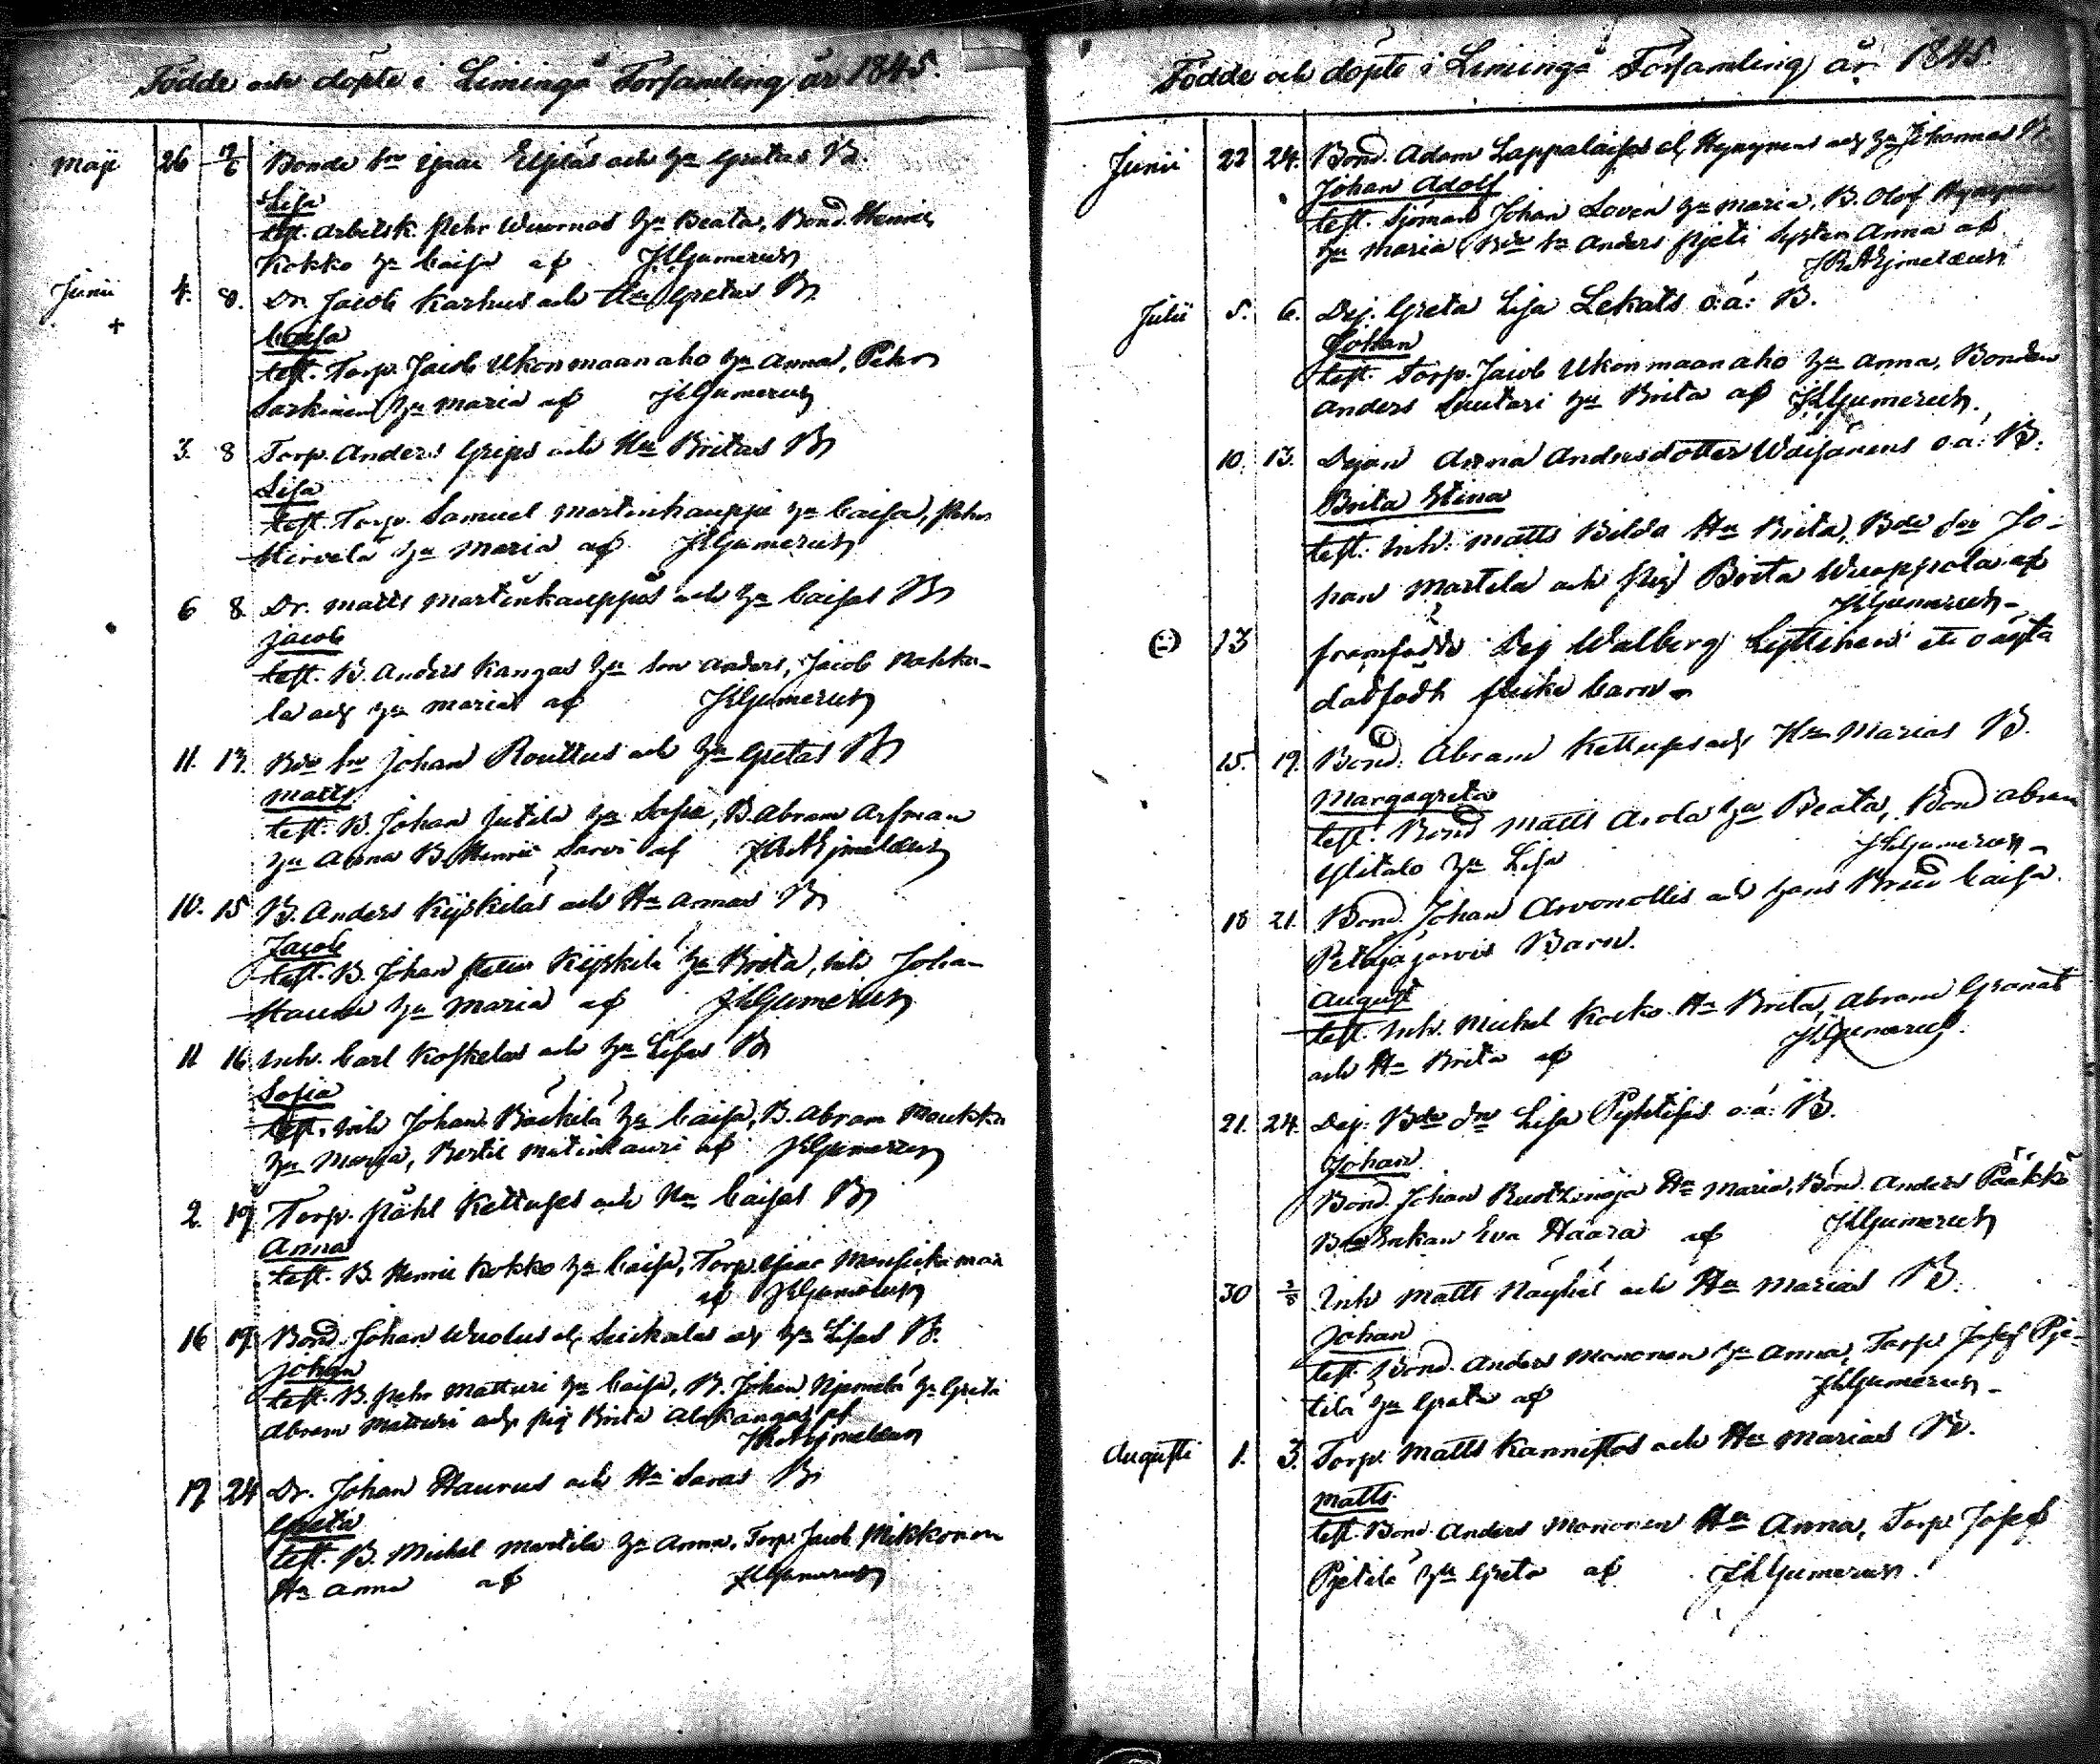 Födde och döpte i Limingå Församling år 1845.
Maji 26 Bonde Sn Isaac och Hu Gretas B.
Lisa
test. Arbetsk. Pehr Wuornos Hu Beata, Bond. Henric
Kokko Hu Caisa af JHGumerus
Junii 4. 8. Dr. Jacob Karhus och Hu Gretas B.
+
Caisa
test. Torp. Jacob Ukonmaanaho Hu Anna, Pehr
Sarkinen Hu Maria af JHGumerus
3. 8 Torp. Anders Grips och Hu Britas B.
Lisa
test. Torp. Samuel Martinkauppi Hu Caisa, Pehr
Hirvelä Hu Maria af JHGumerus
6 8. Dr. Matts Martinkauppis och Hu Caisas B.
Jacob
test. B. Anders Kangas Hu Son Anders, Jacob Nahku-
la och Hu Maria af JHGumerus
11. 13. Bde Sn Johan Routtus och Hu Gretas B.
Matts
test. B. Johan Jutila Hu Sofia, B. Abram Arfman
Hu Anna B. Henric Sarvi af
10. 15 B. Anders Kyrkiläs och Hu Annas B.
Jacob
test. B. Johan Kyrkilä Hu Brita, Inh Johan
Hu Maria af JHGumerus
11 16 Inh. Carl Koskelas och Hu Lisas B.
Sofia
test. Inh Johan Bäckilä Hu Caisa, B. Abram Moukka
Hu Maria, Bertil Matinlauri af JHGumerus
2. 19 Torp. Påhl Kettuses och Hu Caisas B.
Anna
test. B. Henric Kokko Hu Caisa, Torp. Isaac Mansickamaa
af JHGumerus
16 19. Bond. Johan och Hu Lisas B.
Johan
test. B. Pehr Matturi Hu Caisa, B. Johan Njemelä Hu Greta
Abram Matturi och Pig Brita Alakangas af
17 24 Dr. Johan Haurus och Hu Saras B.
Greta
test. B. Michel Martila Hu Anna, Torp. Jacob Mikkonen
Hu Anna af JHGumerus
Födde och döpte i Limingå Församling år 1845.
Junii 22 24. Bond. Adam Lappalaises el. Hyrynens och Hu Johannas B.
Johan Adolf
test. Sjöman Johan Loven Hu Maria, B. Olof
Hu Maria Bde Sn Anders Pjeti Syster Anna af
Julii 5. 6. Pig. Greta Lisa Lekats o.ä: B.
Johan
test. Torp. Jacob Ukonmaanaho Hu Anna, Bonden
Anders Suutari Hu Brita af JHGumerus.
10. 13. Pigan Anna Andersdotter Wäisänens o.ä: B.
Brita Stina
test. Inh. Matts Bilda Hu Brita, Bde Sn Jo-
han Martela och Pig Brita Wuoppola af
JHGumerus
13 framfödde Pig Walborg Lyttinens ett oägta
dödfödt flicke barn
15. 19. Bond. Abram Kettuses och Hu Marias B.
Margagreta
test. Bond Matts Arola Hu Beata, Bond Abram
Ylitalo Hu Lisa JHGumerus
18 21. Bond. Johan Arvonollis och hans Brud Caisa
Petäjäjärvis Barn.
August
test. Inh. Michel Kocko Hu Brita, Abram Granat
och Hu Brita af JHGumerus.
21. 24. Pig. Bde Dr Lisa Pyhtises o.ä: B.
Johan
Bond. Johan Ruotzinoja Hu Maria, Bond. Anders Pääkkö
Eva Haara af JHGumerus
30 2/8 Inh Matts Näyhäs och Hu Marias B.
Johan
test. Bond. Anders Mononen Hu Anna, Torp. Josef Pje-
tilä Hu Greta af JHGumerus
Augusti 1. 3. Torp. Matts Kannistos och Hu Marias B.
Matts
test. Bond Anders Mononen Hu Anna, Torp Josef
Pjetilä Hu Greta af JHGumerus.